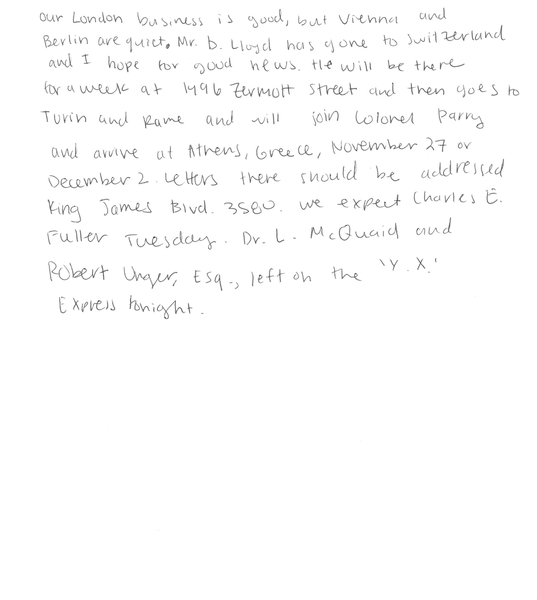 our London business is good, but Vienna and
Berlin are quiet. Mr. D. Lloyd has gone to Switzerland
and I hope for good news. He will be there
for a week at 1496 Zermott Street and then goes to
Turin and Rame and will join Colonel Parry
and arrive at Athens, Greece, November 27 or
December 2. Letters there should be addressed
King James Blvd. 3580. we expect Charles E.
Fuller Tuesday. Dr. L. McQuaid and
Robert Unger, Esq., left on the 'Y. X.'
Express tonight.